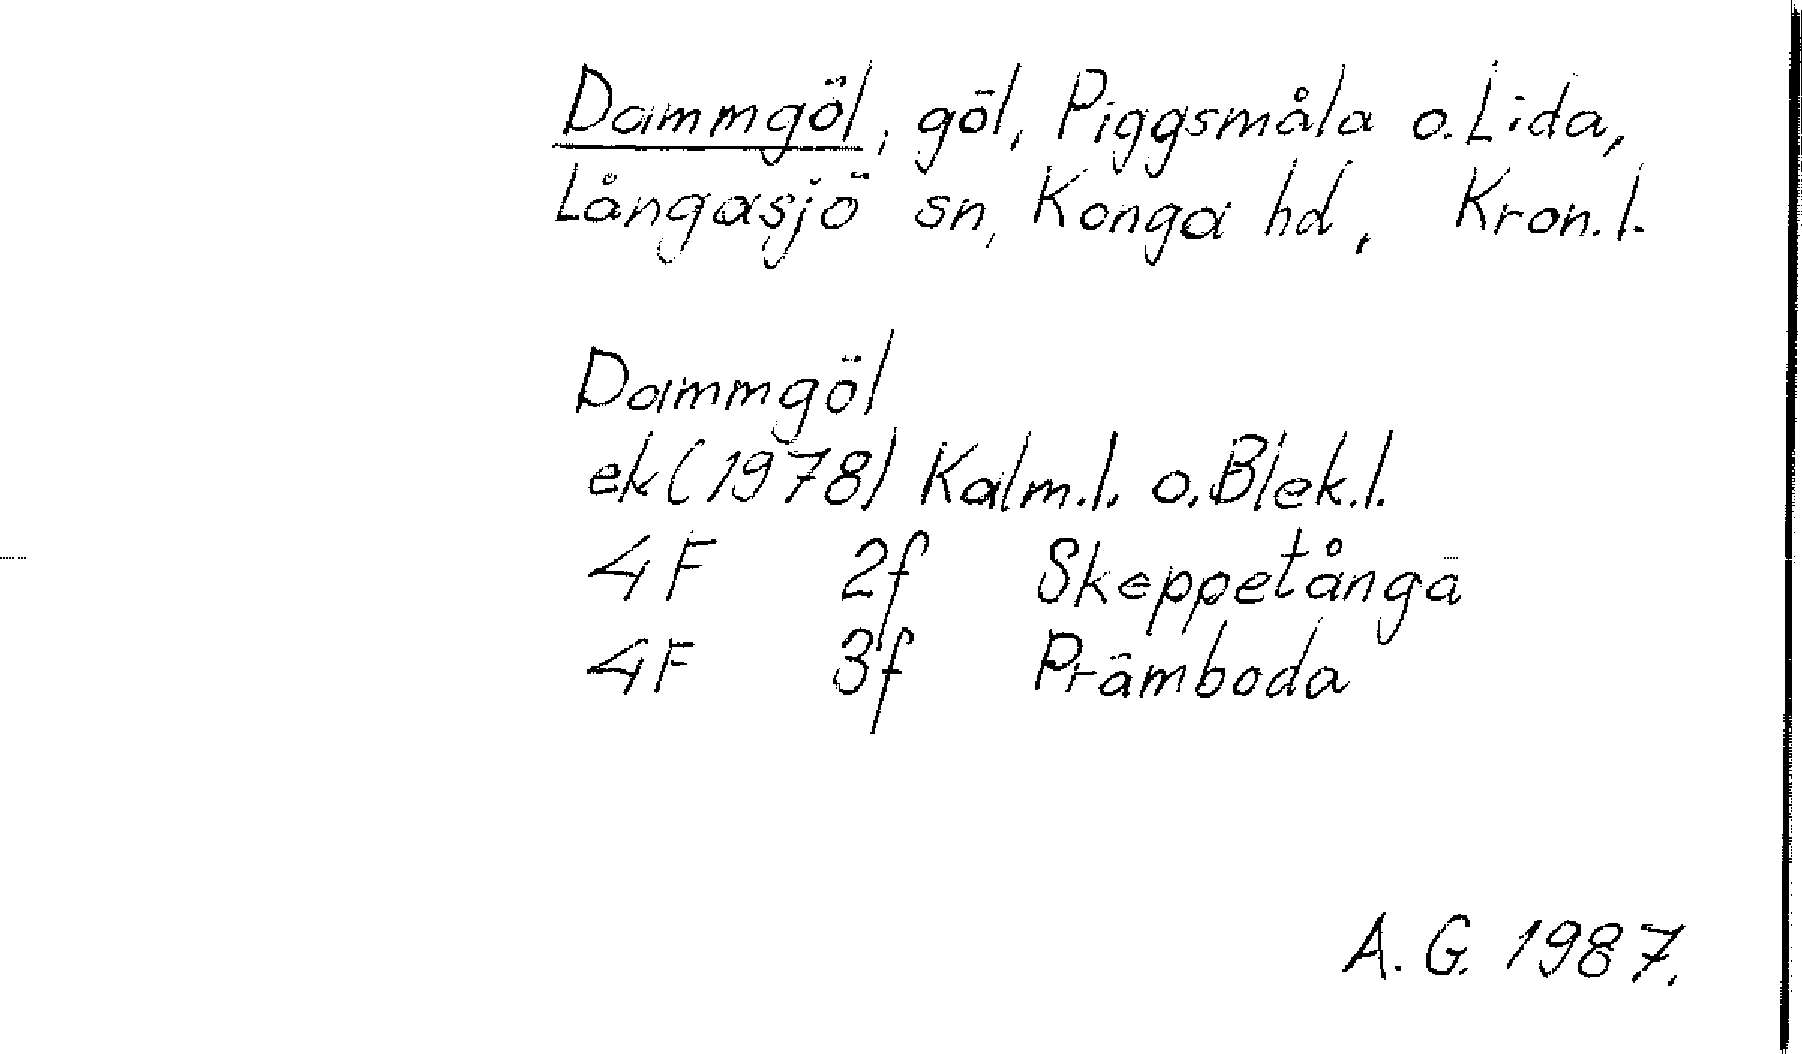 Dammgöl, göl, Piggsmåla o. Lida,
Långasjö sn, Konga hd, Kron.l.
Dammgöl
ek (1978) Kalm.l. o. Blek.l.
4F 2f Skeppetångä
4F 3f Främboda
A.G. 1987.